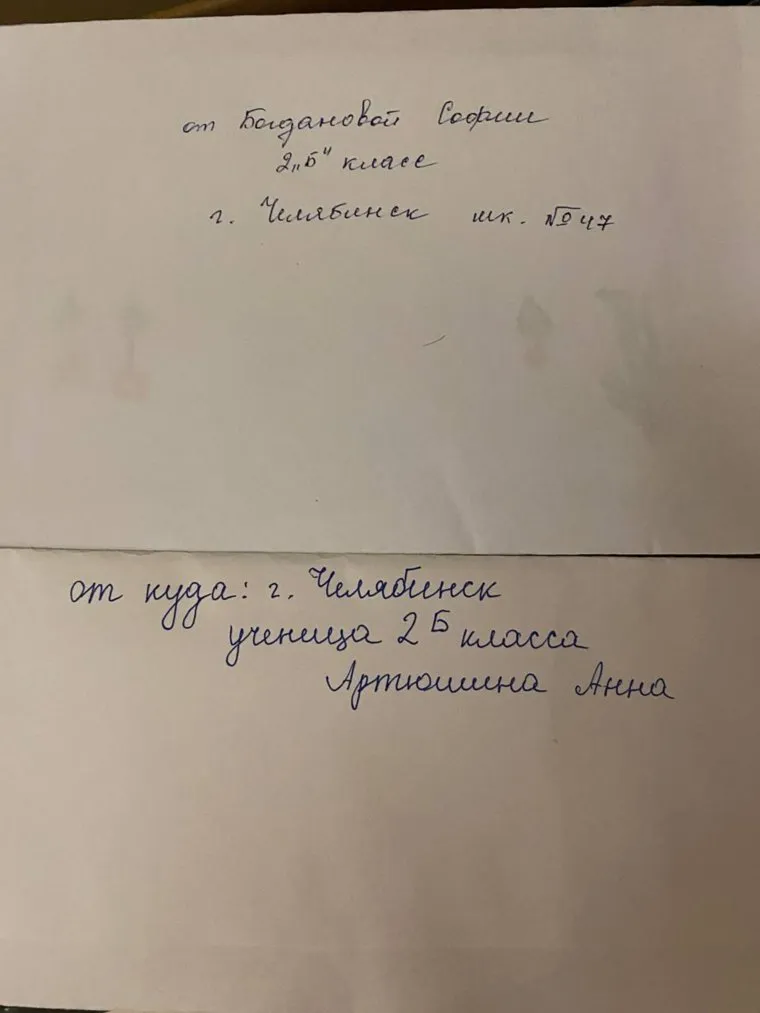 от Богдановой Софии
2„Б“ класс
г. Челябинск шк. № 47
от куда: г. Челябинск
ученица 2 Б класса
Артюшина Анна